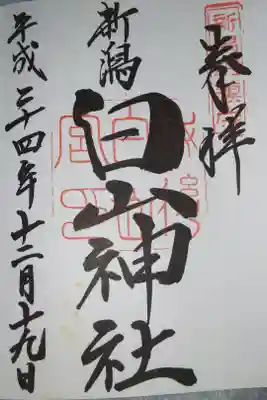 奉拝
新潟
白山神社
平成二十四年十二月十九日